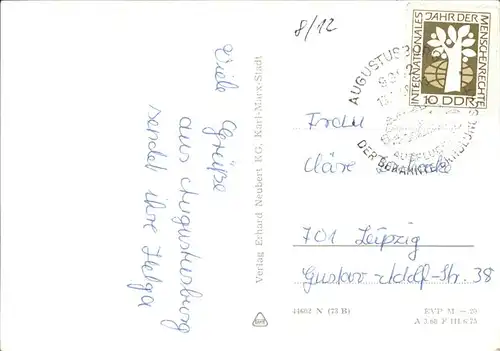 8/12
Viele Grüße
aus Augustusburg
sendet ihre Helga
Verlag Erhard Neubert KG, Karl-Marx-Stadt
INTERNATIONALES
JAHR DER
MENSCHENRECHTE
10 DDR
AUGUSTUSBURG
AUSFLUG
DER BEKANNTE
Frau
Cläre
701 Leipzig
Gustav-Adolf-Str. 38
44602 N (73 R)
EVP M -.20
A 3.60 F III/6/73